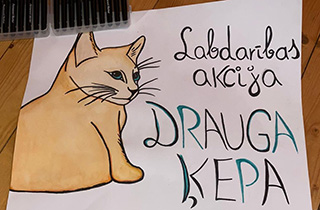 Labdarības
akcija
DRAUGA
ĶEPA